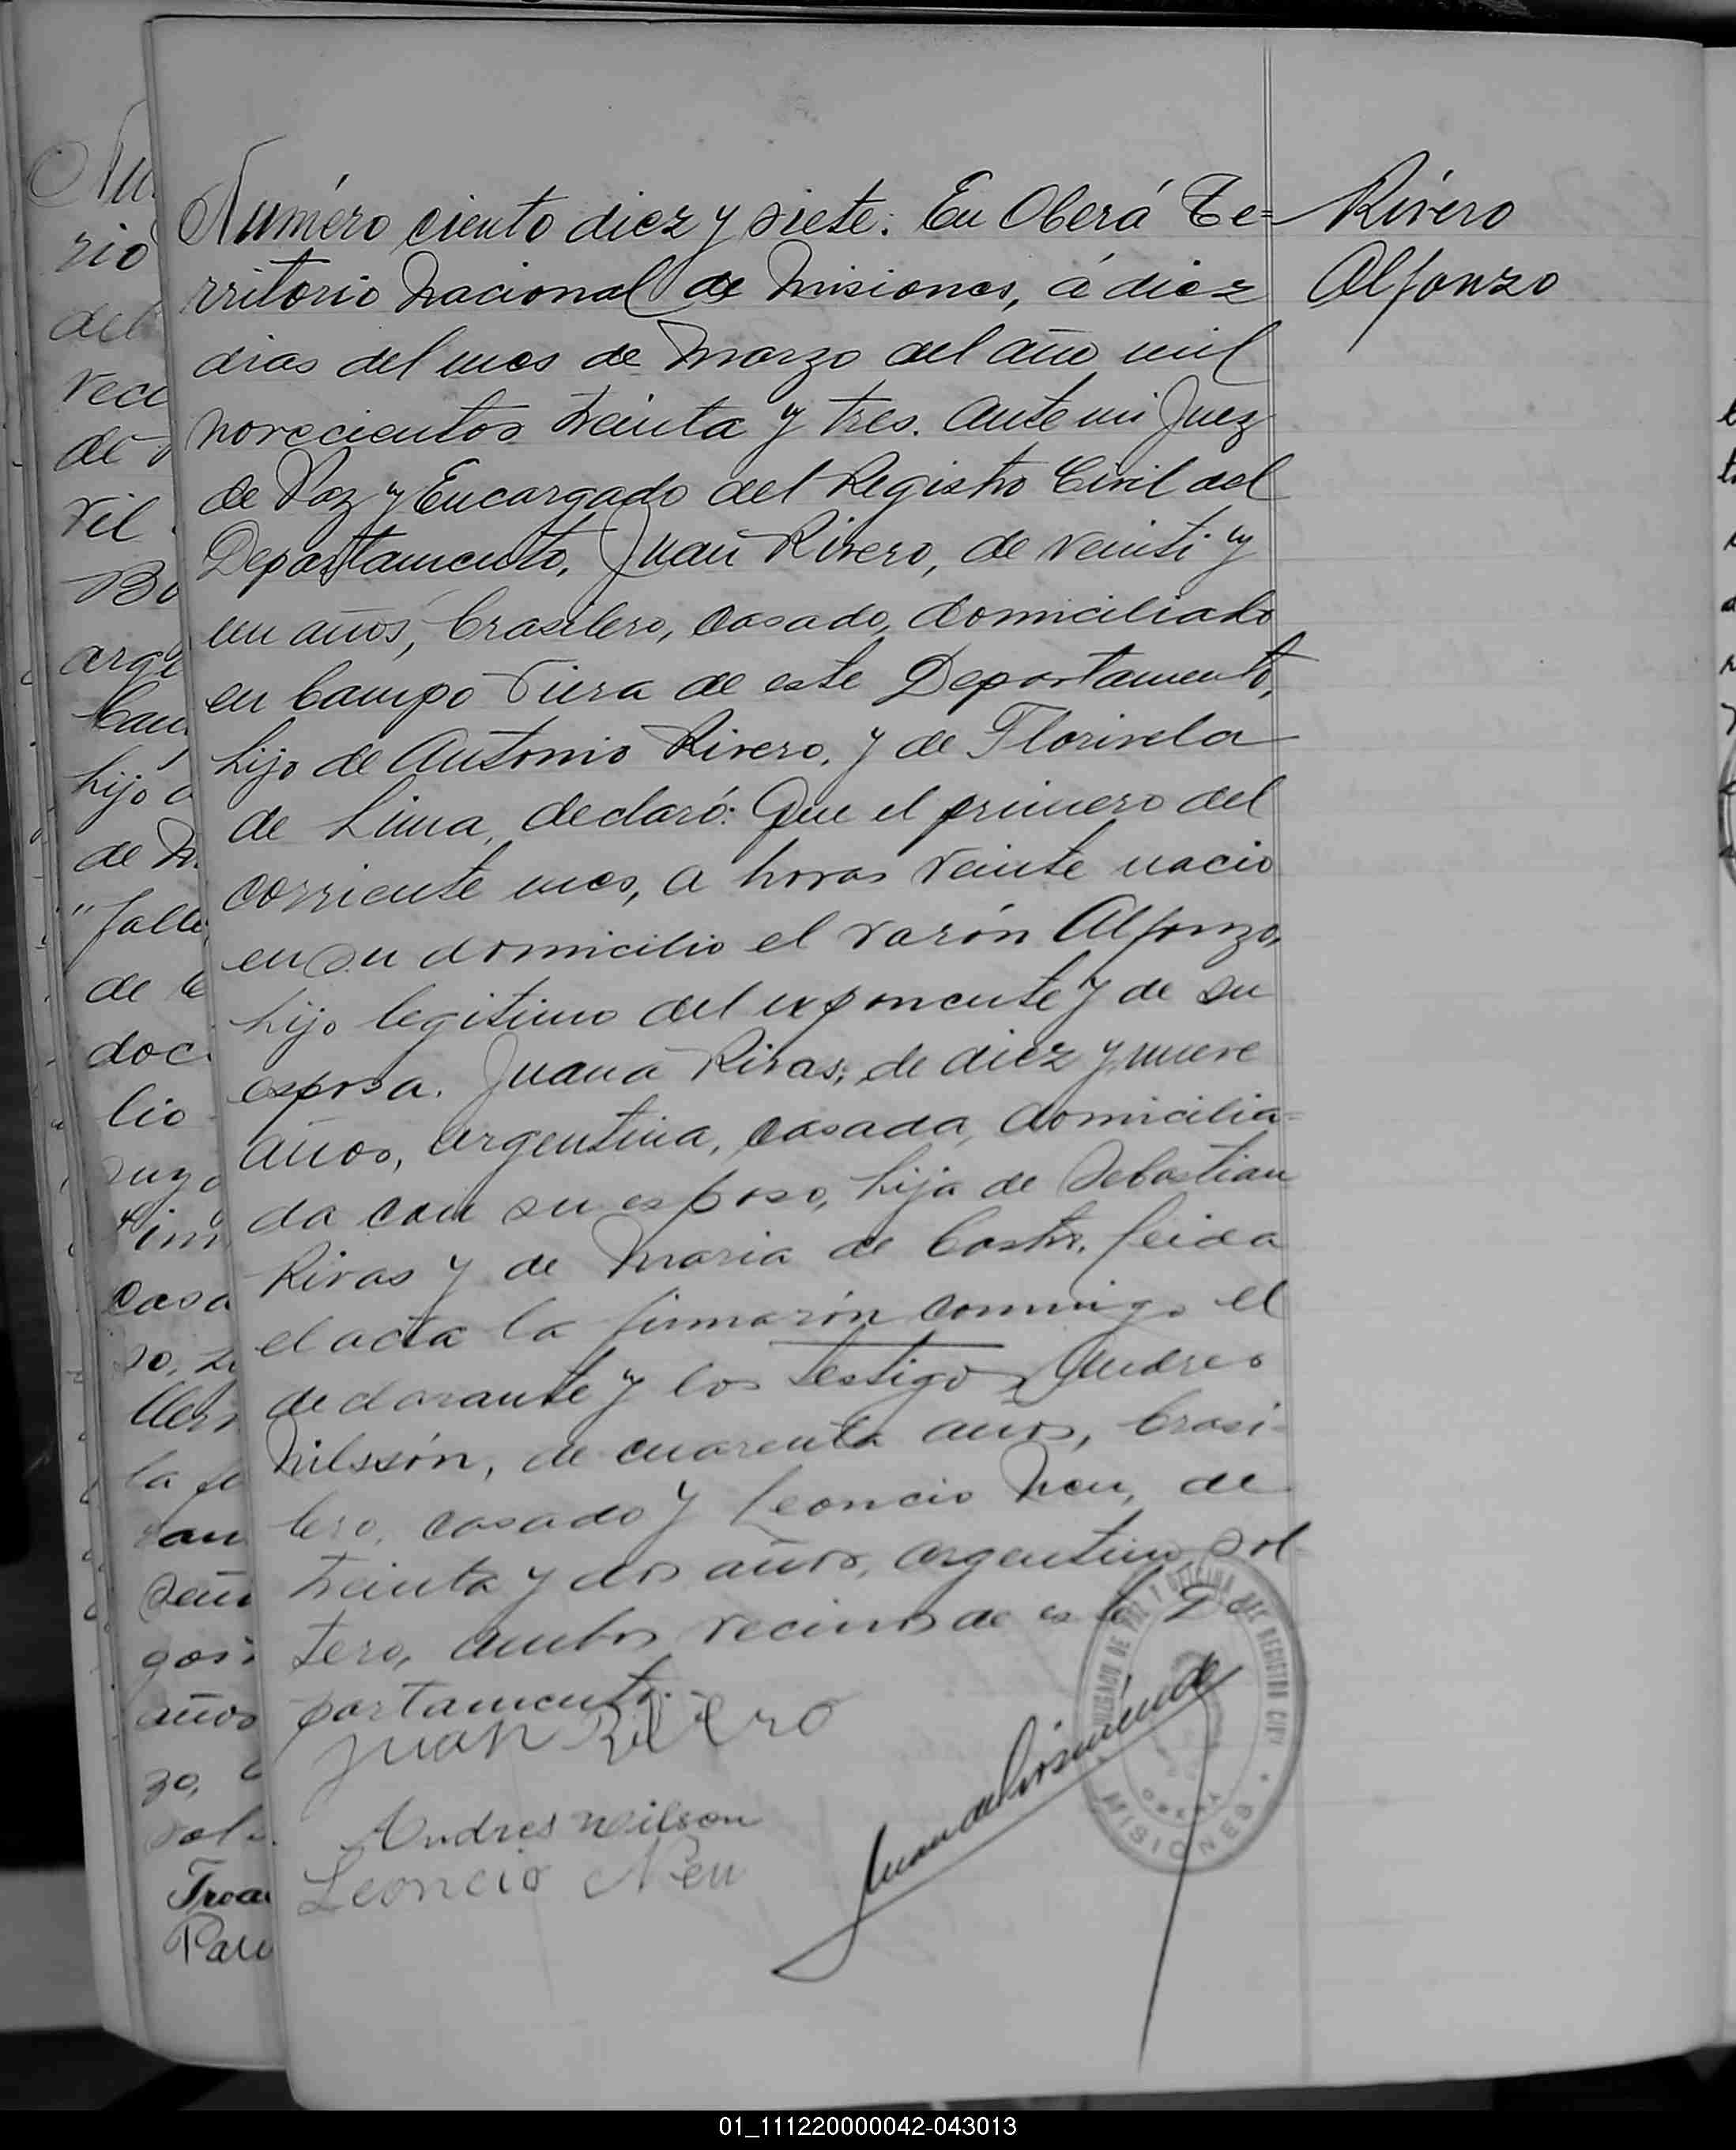 Número ciento diez y siete. En Oberá Te=
rritorio Nacional de Misiones, á diez
dias del mes de Marzo del año mil
novecientos treinta y tres. Ante mi Juez
de Paz y Encargado del Registro Civil del
Departamento, Juan Rivero, de veinti y
un años, brasilero, casado, domiciliado
en Campo Viera de este Departamento,
hijo de Antonio Rivero, y de Florivela
de Lima, declaró: Que el primero del
corriente mes, a horas veinte nacio
en su domicilio el varón Alfonzo,
hijo legitimo del exponente y de su
esposa. Juana Rivas, de diez y nueve
años, argentina, casada, domicilia=
da con su esposo, hija de Sebastian
Rivas y de Maria de Castro. Leida
el acta la firmarón conmigo el
declarante y los testigos Andres
Nilssón, de cuarenta años, brasi-
lero, casado y Leoncio Neu, de
treinta y dos años, argentino, sol
tero, ambos vecinos de este De
partamento.-
Juan Rivero
Andres Nilson
Leoncio Neu
Rivero
Alfonzo
JUZGADO DE PAZ Y OFICINA DEL REGISTRO CIVIL
OBERA
MISIONES
Nu
rio
del
reci
de
vil
Bo
arge
Cam
hijo d
de M
"falle
de
doc
lio
casa
la
gos
años
01_111220000042-043013